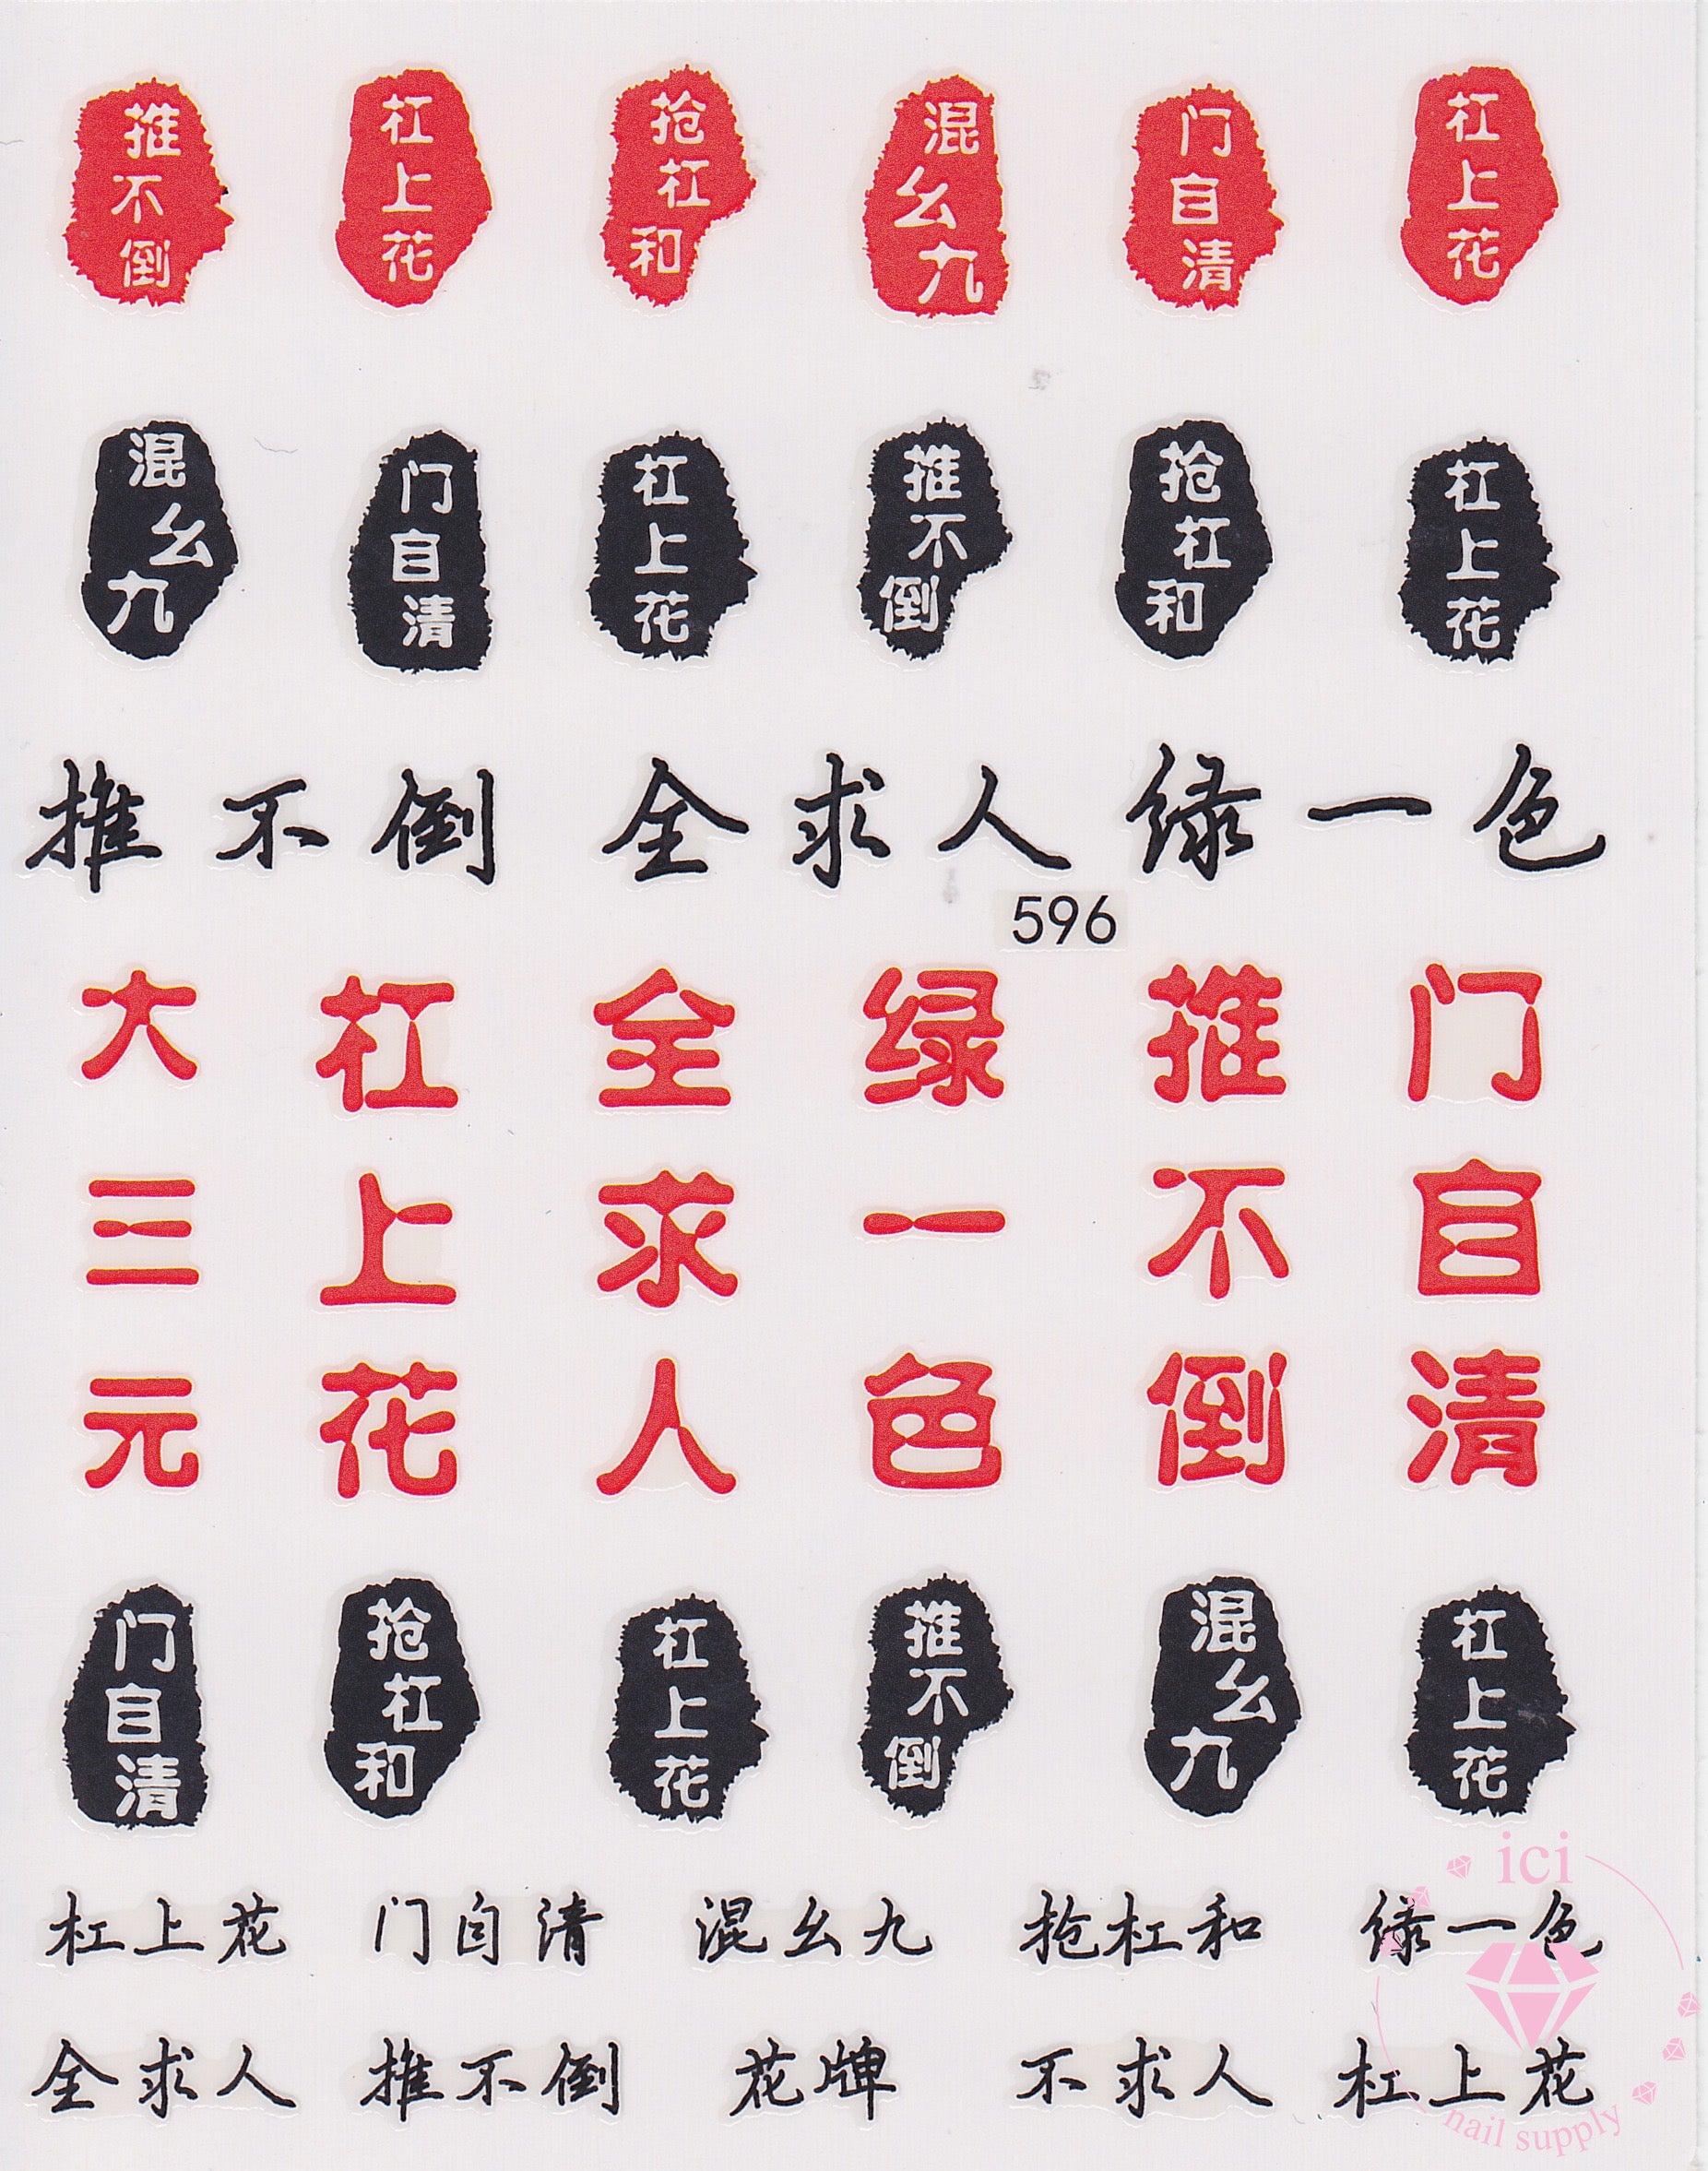 推不倒 杠上花 抢杠和 混幺九 门自清 杠上花
混幺九 门自清 杠上花 推不倒 抢杠和 杠上花
推不倒 全求人 绿一色
596
大三元 杠上花 全求人 绿一色 推不倒 门自清
门自清 抢杠和 杠上花 推不倒 混幺九 杠上花
杠上花 门自清 混幺九 抢杠和 绿一色
全求人 推不倒 花牌 不求人 杠上花
ici
nail supply